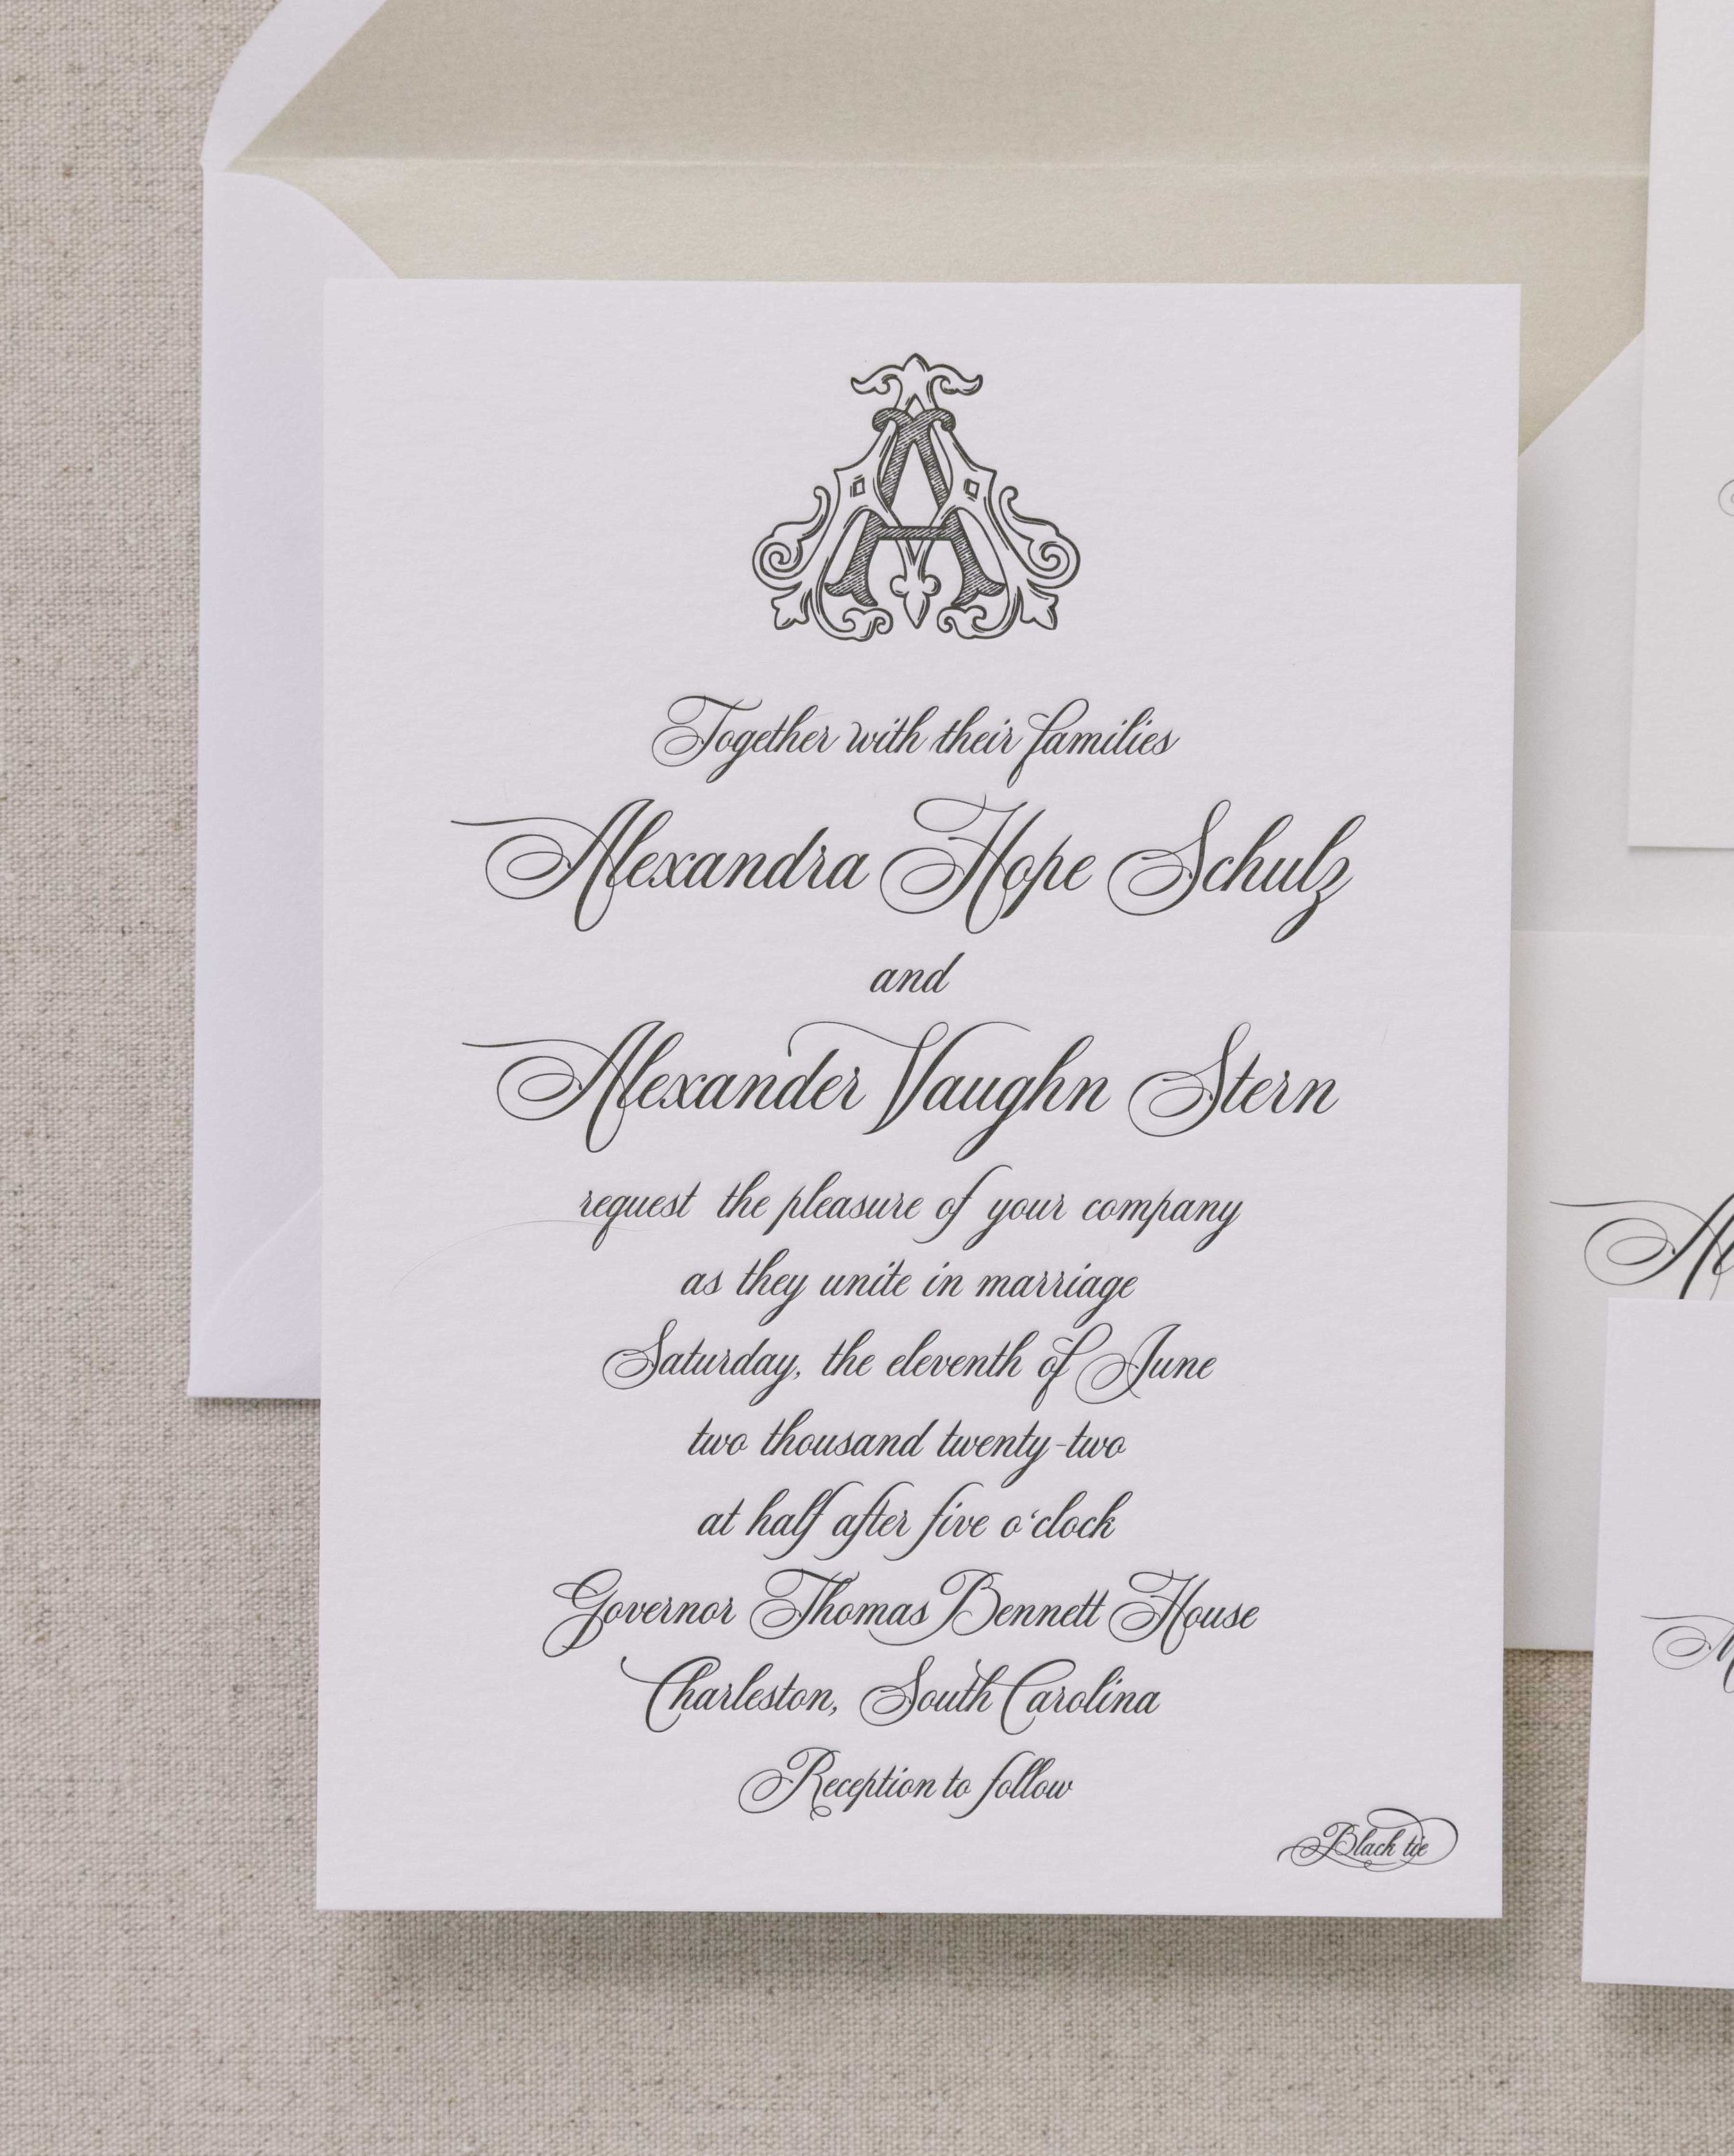 Together with their families
Alexandra Hope Schulz
and
Alexander Vaughn Stern
request the pleasure of your company
as they unite in marriage
Saturday, the eleventh of June
two thousand twenty-two
at half after five o'clock
Governor Thomas Bennett House
Charleston, South Carolina
Reception to follow
Black tie